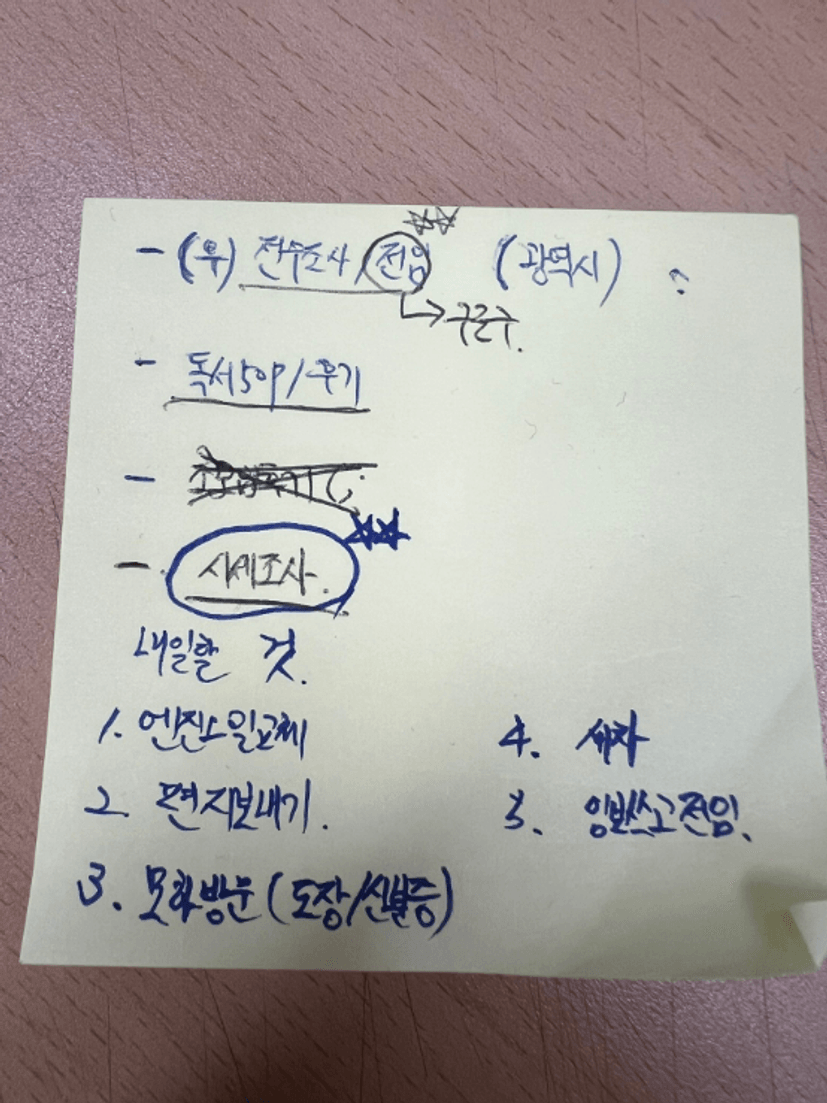 - (우) 전수조사/전임 (광역시)
→ 구근구.
- 독서50P/후기
-
- 시세조사.
내일할 것.
1. 엔진오일교체
2. 편지보내기.
3. 모화방문(도장/신분증)
4. 세차
5. 임보쓰고전임.